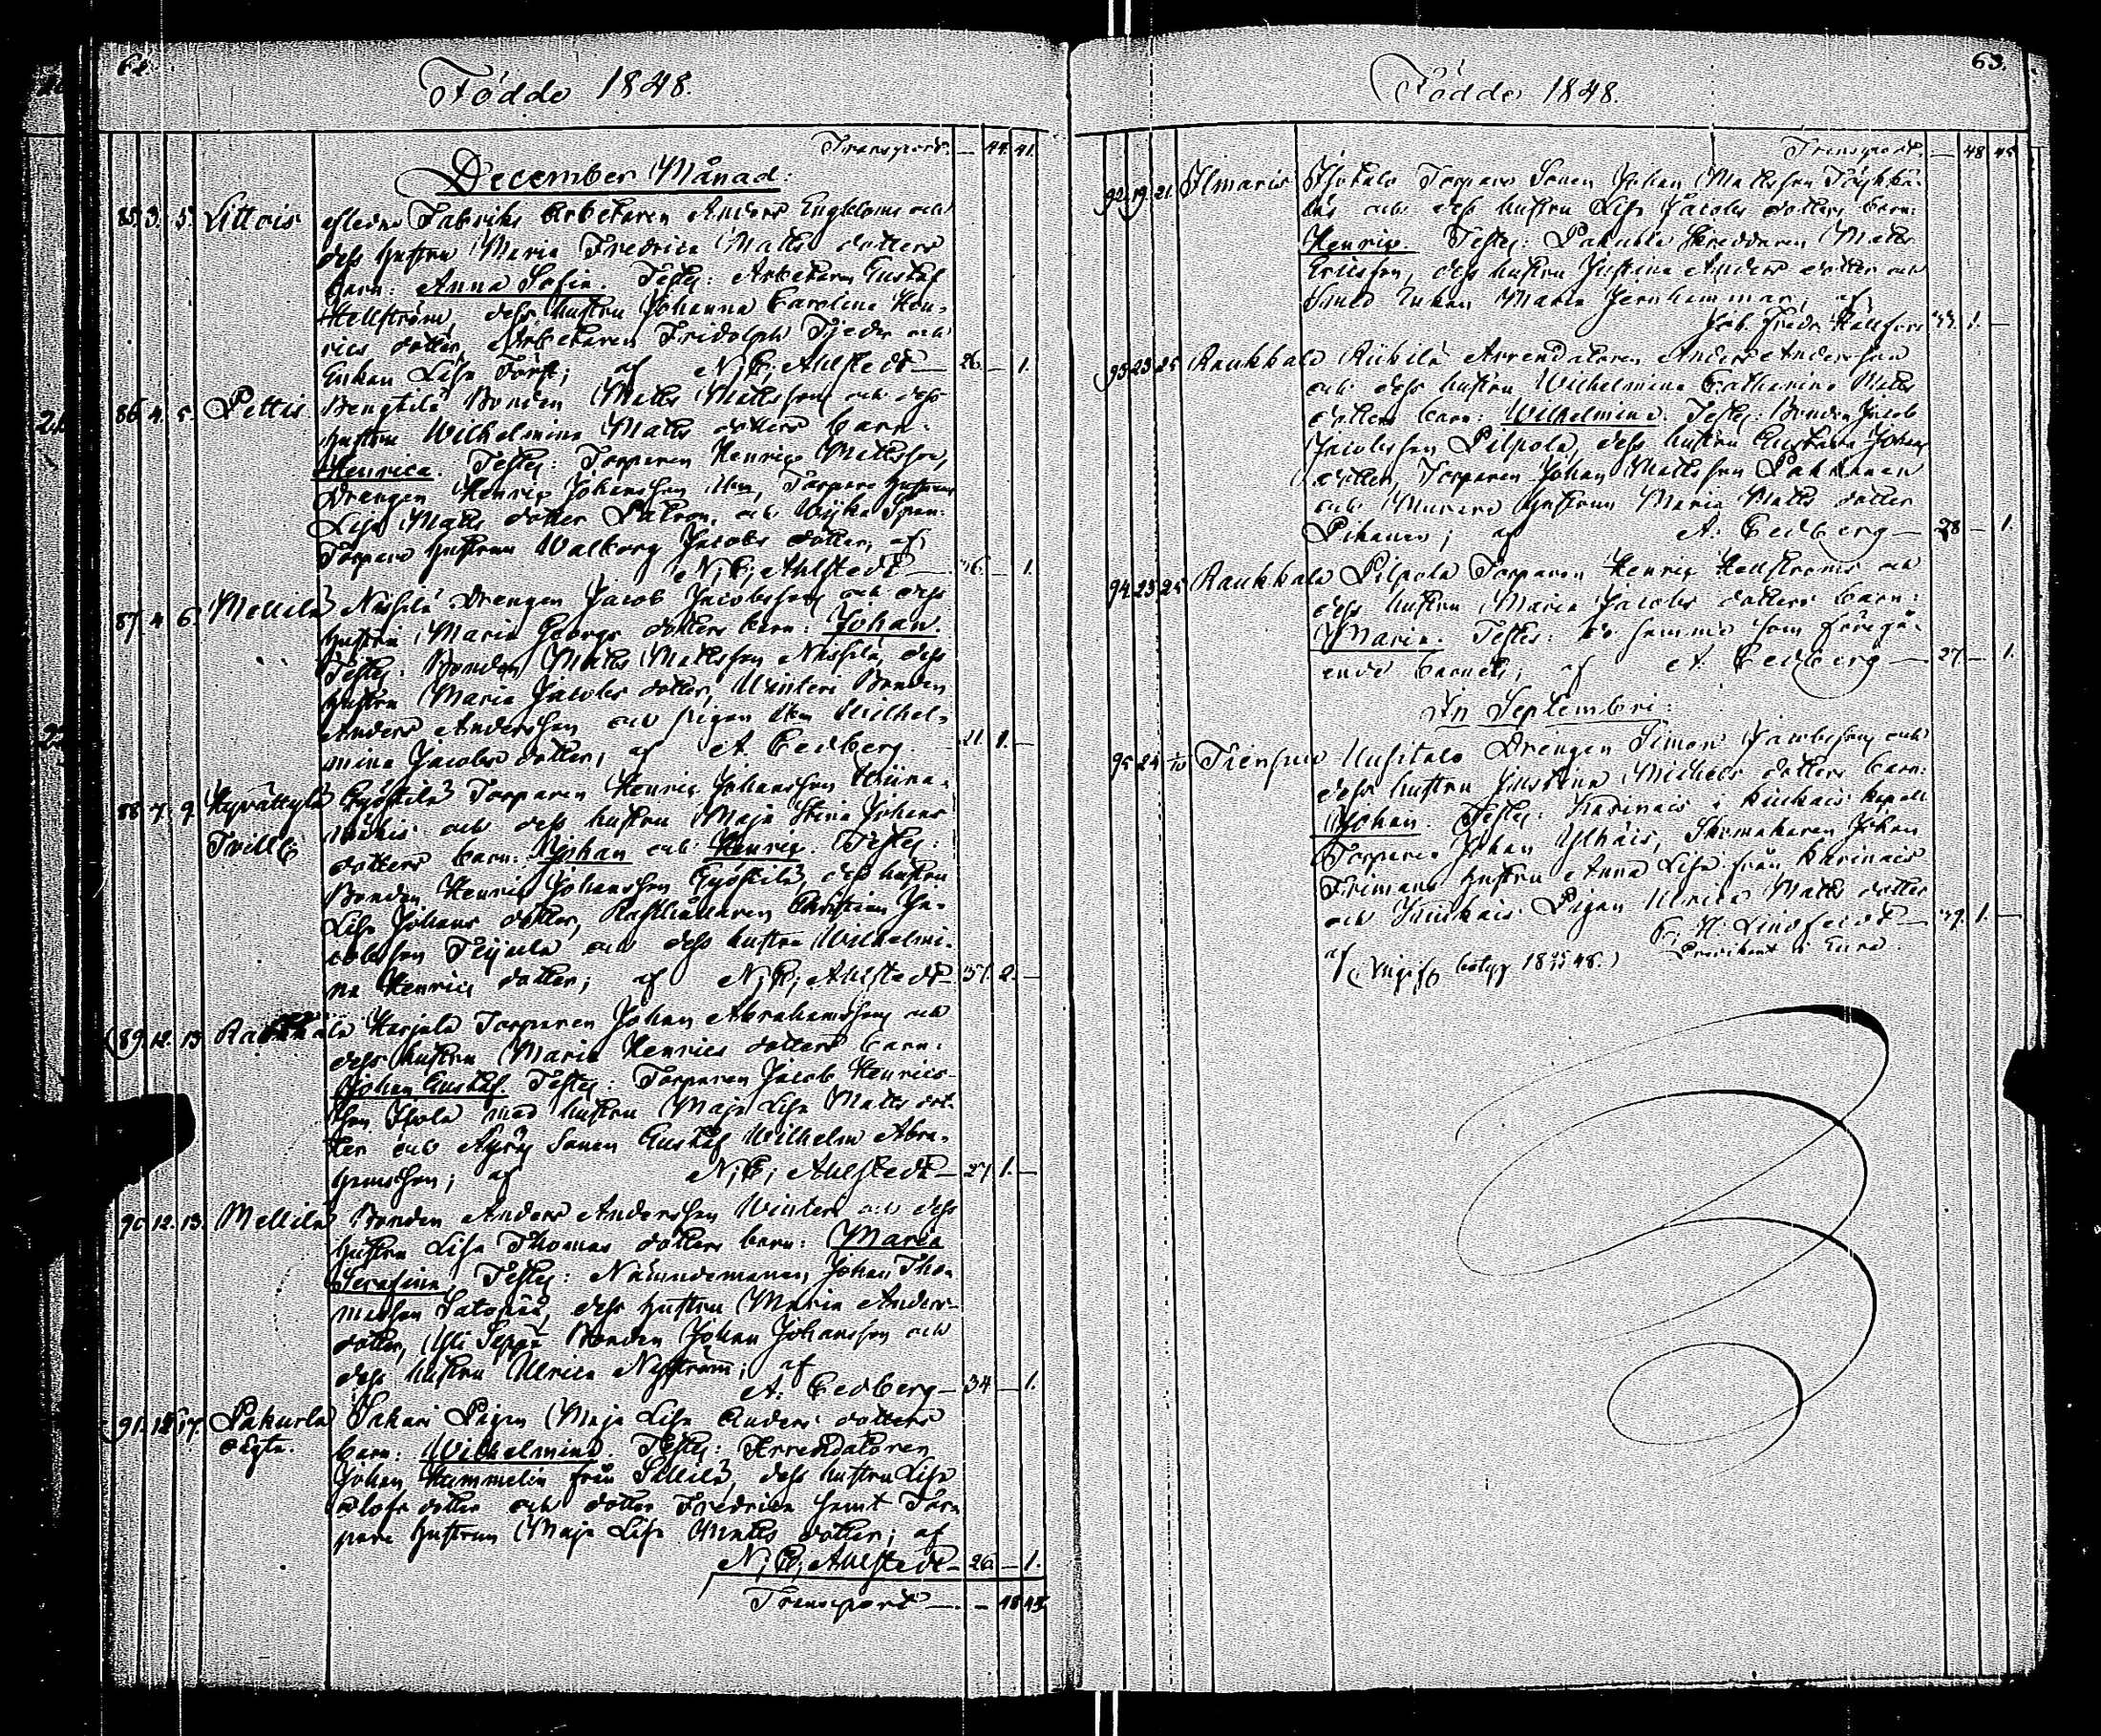 62.
Födde 1848.
Transport. — 44. 41.
December Månad:
85. 3. 5. Littois aflidne Fabriks Arbetaren Anders Engbloms och
dess hustru Maria Fredrica Matts dotters
barn: Anna Sofia. Testes: Arbetaren Gustaf
Hellström, dess hustru Johanna Carolina Hen-
rics dotter, Arbetaren Fridolph Tjeder och
Enkan Lisa Förs; af N; C; Ahlstedt — 26. — 1.
86. 4. 5. Pettis Bengtilä Bonden Matts Mattsson och dess
hustru Wilhelmina Matts dotters barn:
Henrica. Testes: Torparen Henric Mattsson,
Drengen Henric Johansson ibm, Torpare hustrun
Lisa Matts dotter och
Torpare hustrun Walborg Jacobs dotter, af
N; C; Ahlstedt — 36. — 1.
87. 4. 6. Mellilä Nässilä Drengen Jacob Jacobsson och dess
hustru Maria Georgs dotters barn: Johan.
Testes: Bonden Matts Mattsson Nässilä, dess
hustru Maria Jacobs dotter, Winteri Bonden
Anders Andersson och pigan ibm Wilhel-
mina Jacobs dotter, af A. Cedberg. — 21. 1. —
88. 7. 9. Hyvättylä Gyöstilä Torparen Henric Johansson Kiina-
Tvill. mäkis och dess hustru Maja Stina Johans
dotters barn: Johan och Henric. Testes:
Bonden Henric Johansson Gyöstilä, dess hustru
Lisa Johans dotter, Rusthållaren Christian Ja-
cobsson Teijula och dess hustru Wilhelmi-
na Henrics dotter; af N; C; Ahlstedt — 37. 2. —
89. 12. 13. Raukkala Harjula Torparen Johan Abrahamsson och
dess hustru Maria Henrics dotters barn:
Johan Gustaf. Testes: Torparen Jacob Henrics-
son Isola med hustru Maja Lisa Matts dot-
ter och Äyräs Sonen Gustaf Wilhelm Abra-
hamsson; af N; C; Ahlstedt — 27. 1. —
90. 12. 13. Mellilä Bonden Anders Andersson Winteri och dess
hustru Lisa Thomas dotters barn: Maria
Serafina. Testes: Nämndemannen Johan Tho-
masson Satopää, dess hustru Maria Anders
dotter, Yli Seppä Bonden Johan Johansson och
dess hustru Ulrica Nyström; af
A. Cedberg — 34 — 1.
91. 17. Pakurla Sakari Pigan Maja Lisa Anders dotters
oägta. barn: Wilhelmina. Testes: Arrendatoren
Johan Hammelin från Sillilä, dess hustru Lisa
Olofs dotter och dotter Fredrica samt Tor-
pare hustrun Maja Lisa Matts dotter; af
N; C; Ahlstedt — 26. — 1.
Transport — 48 45.
63.
Födde 1848.
Transport. — 48 45
92. 19. 21. Ilmaris Isotalo Torpare Sonen Johan Mattsson
och dess hustru Lisa Jacobs dotters barn:
Henric. Testes: Pakurla Skreddaren Matts
Ericsson, dess hustru Justina Anders dotter och
Smeds Enkan Maria Jernhammar; af
Joh. Fredr. Hällfors 33. 1. —
93. 23. 25. Raukkala Riihilä Arrendatoren Anders Andersson
och dess hustru Wilhelmina Catharina Matts
dotters barn: Wilhelmina. Testes: Bonden Jacob
Jacobsson Pilpola, dess hustru Gustava Johans
dotter, Torparen Johan Mattsson
och Murare hustrun Maria Matts dotter
Pihanen; af A. Cedberg — 28 — 1.
94. 23. 25. Raukkala Pilpola Torparen Henric Hellströms och
dess hustru Maria Jacobs dotters barn:
Maria. Testes: de samma som föregå-
ende barnets; af A. Cedberg — 27. — 1.
In Septembri:
95. 24. 1/10 Tiensuu Uusitalo Drengen Simon Jacobsson och
dess hustru Justina Michels dotters barn:
Johan. Testes: Karinais i Kiukais kapell
Torparen Johan Ylhäis, Skomakaren Johan
Frimans hustru Anna Lisa från Karinais
och Pigan Ulrica Matts dotter
af C; H. Lindstedt — 39. 1. —
Predikant i Eura.